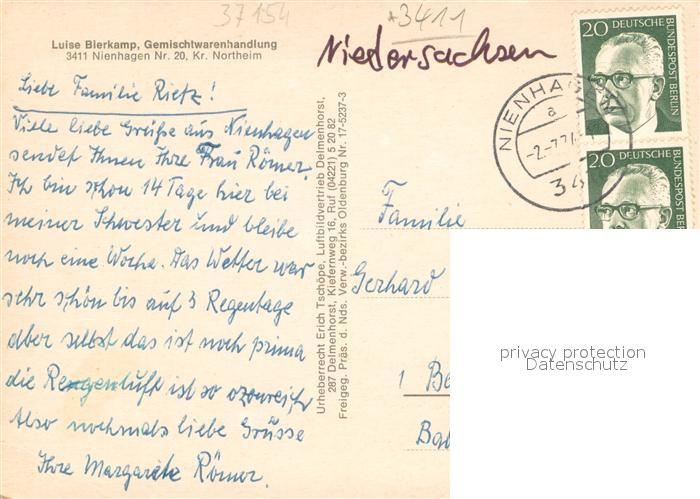 37154
*3411
Niedersachsen
Luise Bierkamp, Gemischtwarenhandlung
3411 Nienhagen Nr. 20, Kr. Northeim
Liebe Familie Rietz!
Viele liebe Grüße aus Nienhagen
sendet Ihnen Ihre Frau Römer.
Ich bin schon 14 Tage hier bei
meiner Schwester und bleibe
noch eine Woche. Das Wetter war
sehr schön bis auf 3 Regentage
aber selbst das ist noch prima
die Regenluft ist so ozonreich
Also nochmals liebe Grüsse
Ihre Margarete Römer.
Urheberrecht Erich Tschöpe, Luftbildvertrieb Delmenhorst,
287 Delmenhorst, Kiefernweg 16, Ruf (04221) 5 20 82
Freigeg. Präs. d. Nds. Verw.-bezirks Oldenburg Nr. 17-5237-3
20 DEUTSCHE BUNDESPOST BERLIN
20 DEUTSCHE BUNDESPOST
NIENHAG
a
34
Familie
Gerhard
1 Be
Bad
privacy protection
Datenschutz